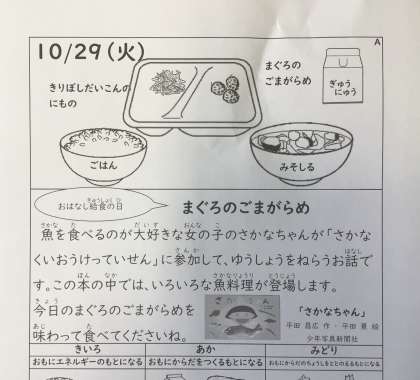 A
10/29(火)
きりぼしだいこんの
にもの
まぐろの
ごまがらめ
ぎゅう
にゅう
ごはん
みそしる
おはなし給食の日
まぐろのごまがらめ
魚を食べるのが大好きな女の子のさかなちゃんが「さかな
くいおうけっていせん」に参加して、ゆうしょうをねらうお話で
す。この本の中では、いろいろな魚料理が登場します。
今日のまぐろのごまがらめを
味わって食べてくださいね。
「さかなちゃん」
平田 昌広 作・平田 景 絵
少年写真新聞社
きいろ
あか
みどり
おもにエネルギーのもとになる
おもにからだをつくるもとになる
おもにからだのちょうしをととのえるもとになる